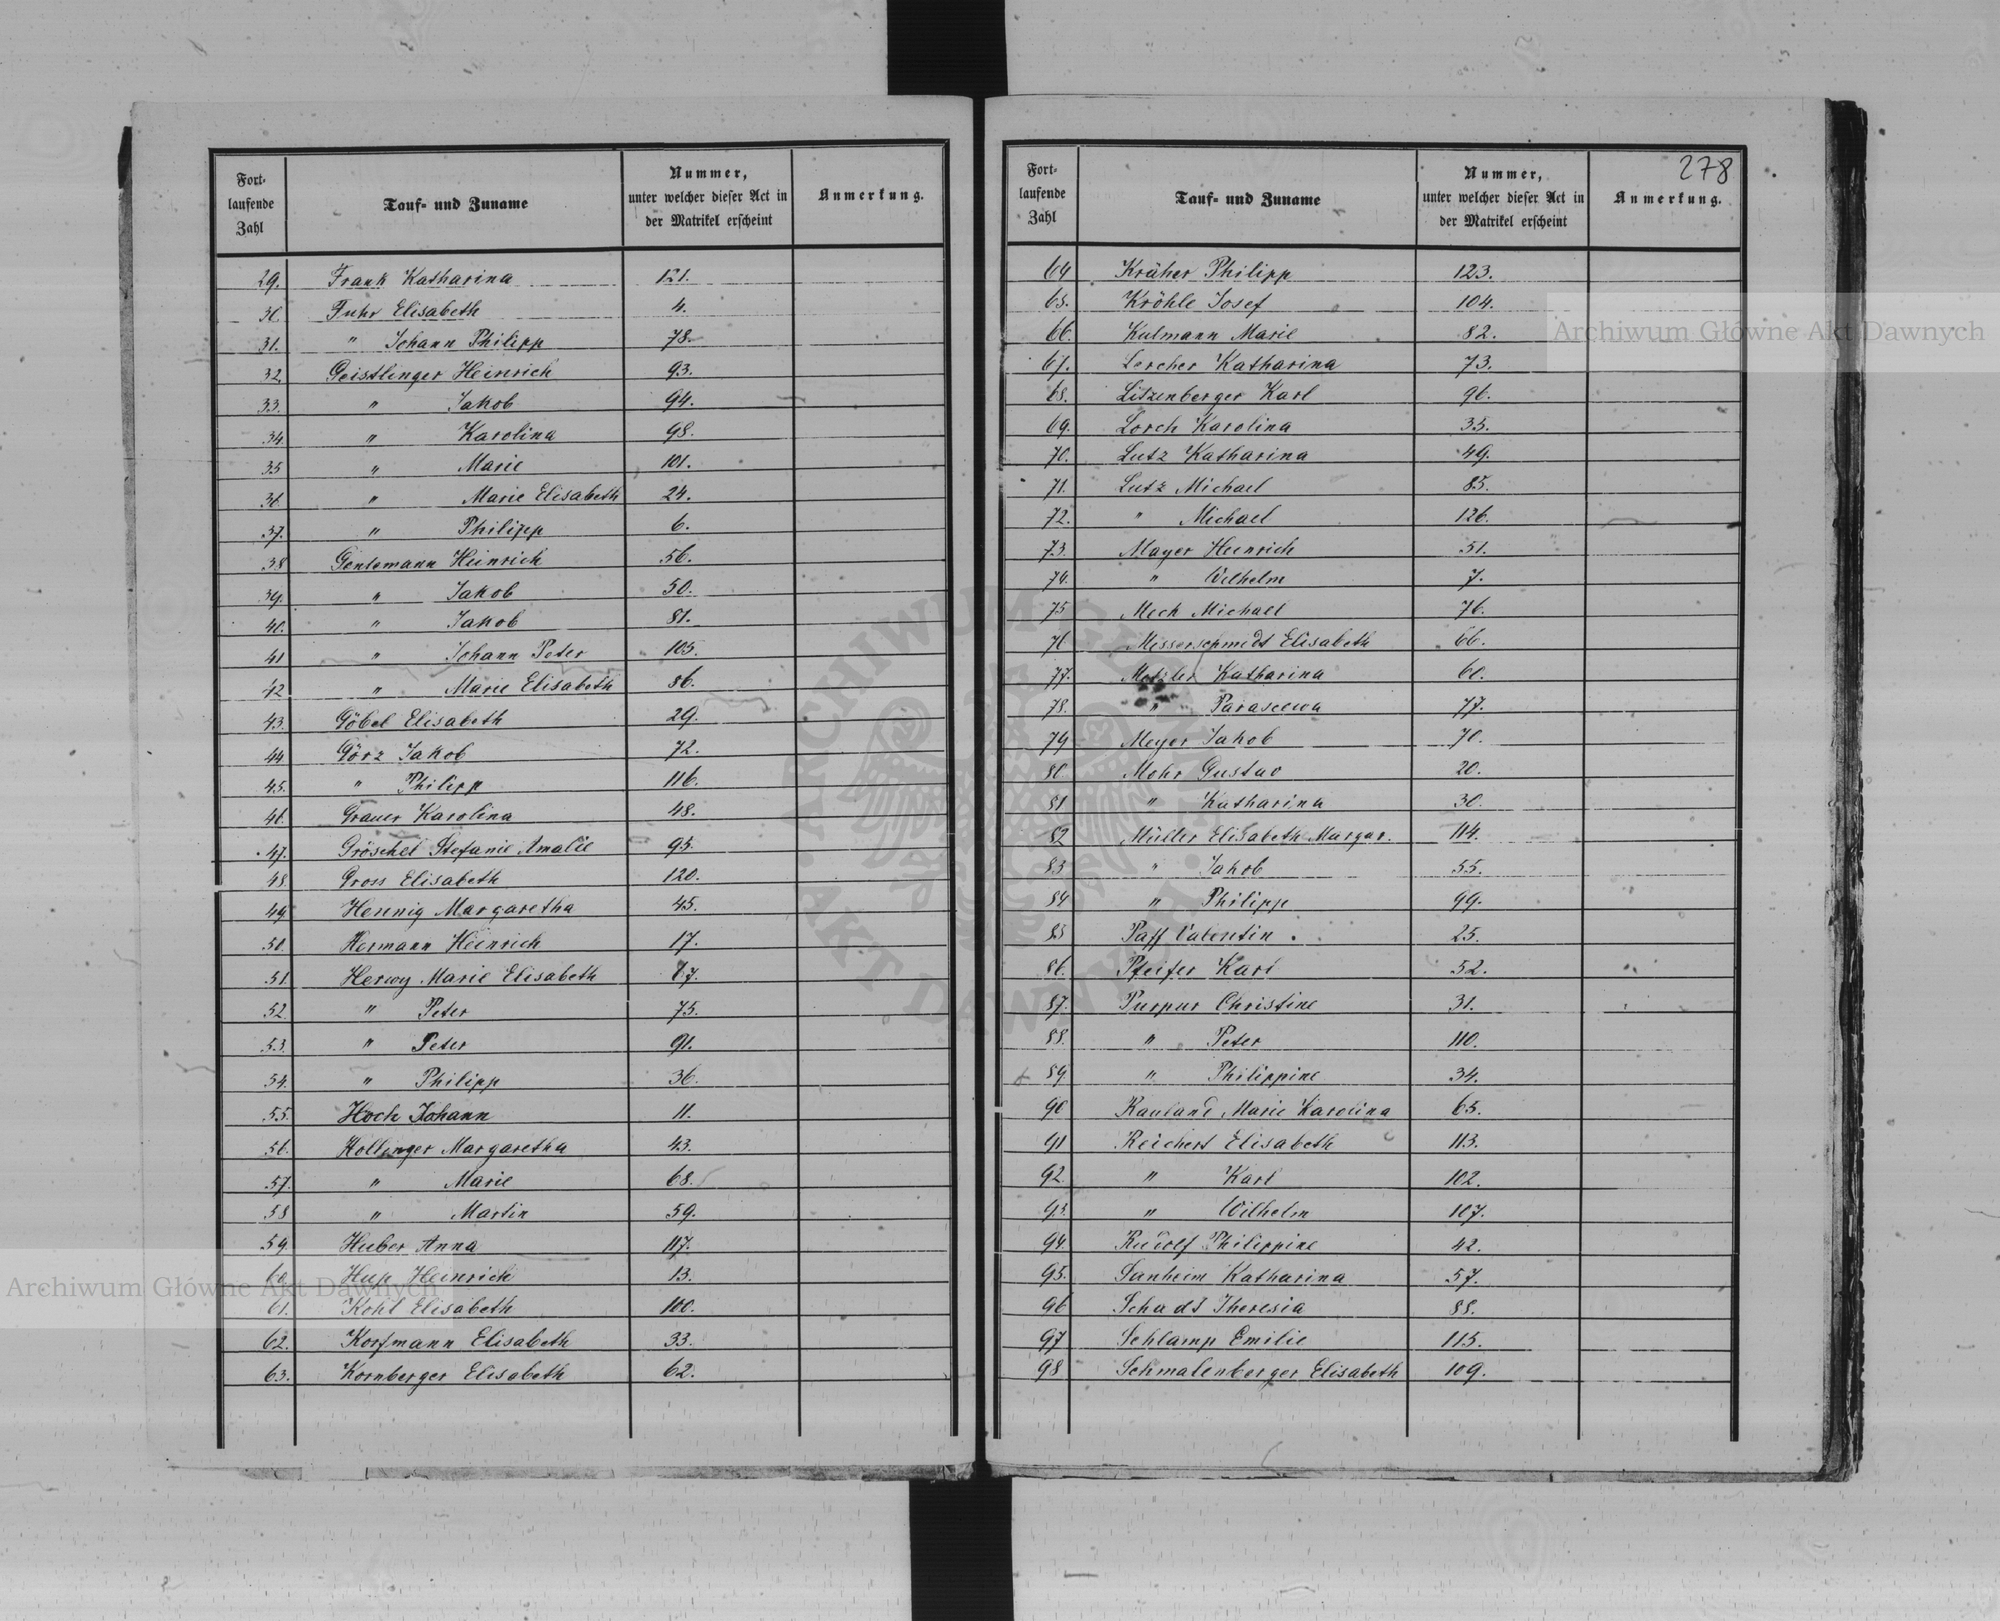 278
Fort-
laufende
Zahl
Tauf- und Zuname
Nummer,
unter welcher dieser Act in
der Matrikel erscheint
Anmerkung.
29. Frank Katharina 121.
30. Fuhr Elisabeth 4.
31. " Johann Philipp 78.
32. Geistlinger Heinrich 93.
33. " Jakob 94.
34. " Karolina 98.
35 " Marie 101.
36. " Marie Elisabeth 24.
37. " Philipp 6.
38 Gentemann Heinrich 56.
39. " Jakob 50.
40. " Jakob 81.
41 " Johann Peter 105.
42 " Marie Elisabeth 86.
43. Göbel Elisabeth 29.
44 Görz Jakob 72.
45. " Philipp 116.
46. Grauer Karolina 48.
47. Gröschel Stefanie Amalie 95.
48. Gross Elisabeth 120.
49. Hennig Margaretha 45.
50. Hermann Heinrich 17.
51. Herwy Marie Elisabeth 87.
52. " Peter 75.
53. " Peter 91.
54. " Philipp 36.
55. Hoch Johann 11.
56. Hollinger Margaretha 43.
57. " Marie 68.
58 " Martin 59.
59. Huber Anna 117.
60. Hup Heinrich 13.
61. Kohl Elisabeth 100.
62. Korfmann Elisabeth 33.
63. Kornberger Elisabeth 62.
Fort-
laufende
Zahl
Tauf- und Zuname
Nummer,
unter welcher dieser Act in
der Matrikel erscheint
Anmerkung.
64 Kräher Philipp 123.
65. Kröhle Josef 104.
66. Kulmann Marie 82.
67. Lercher Katharina 73.
68. Litzenberger Karl 96.
69. Lorch Karolina 35.
70. Lutz Katharina 49.
71. Lutz Michael 85.
72. " Michael 126.
73. Mayer Heinrich 51.
74. " Wilhelm 7.
75 Meck Michael 76.
76 Messerschmidt Elisabeth 66.
77. Metzler Katharina 60.
78. " Parascewa 77.
79 Meyer Jakob 70.
80 Mohr Gustav 20.
81. " Katharina 30.
82 Müller Elisabeth Margar. 114.
83 " Jakob 55.
84 " Philipp 99.
85 Paff Valentin 25.
86. Pfeifer Karl 52.
87. Purpur Christine 31.
88. " Peter 110.
89 " Philippine 34.
90 Rauland Marie Karolina 65.
91 Reichert Elisabeth 113.
92. " Karl 102.
93. " Wilhelm 107.
94. Rudolf Philippine 42.
95. Sanheim Katharina 57.
96 Schadt Theresia 88.
97 Schlamp Emilie 115.
98 Schmalenberger Elisabeth 109.
Archiwum Główne Akt Dawnych
Archiwum Główne Akt Dawnych
ARCHIWUM GŁÓWNE
AKT DAWNYCH